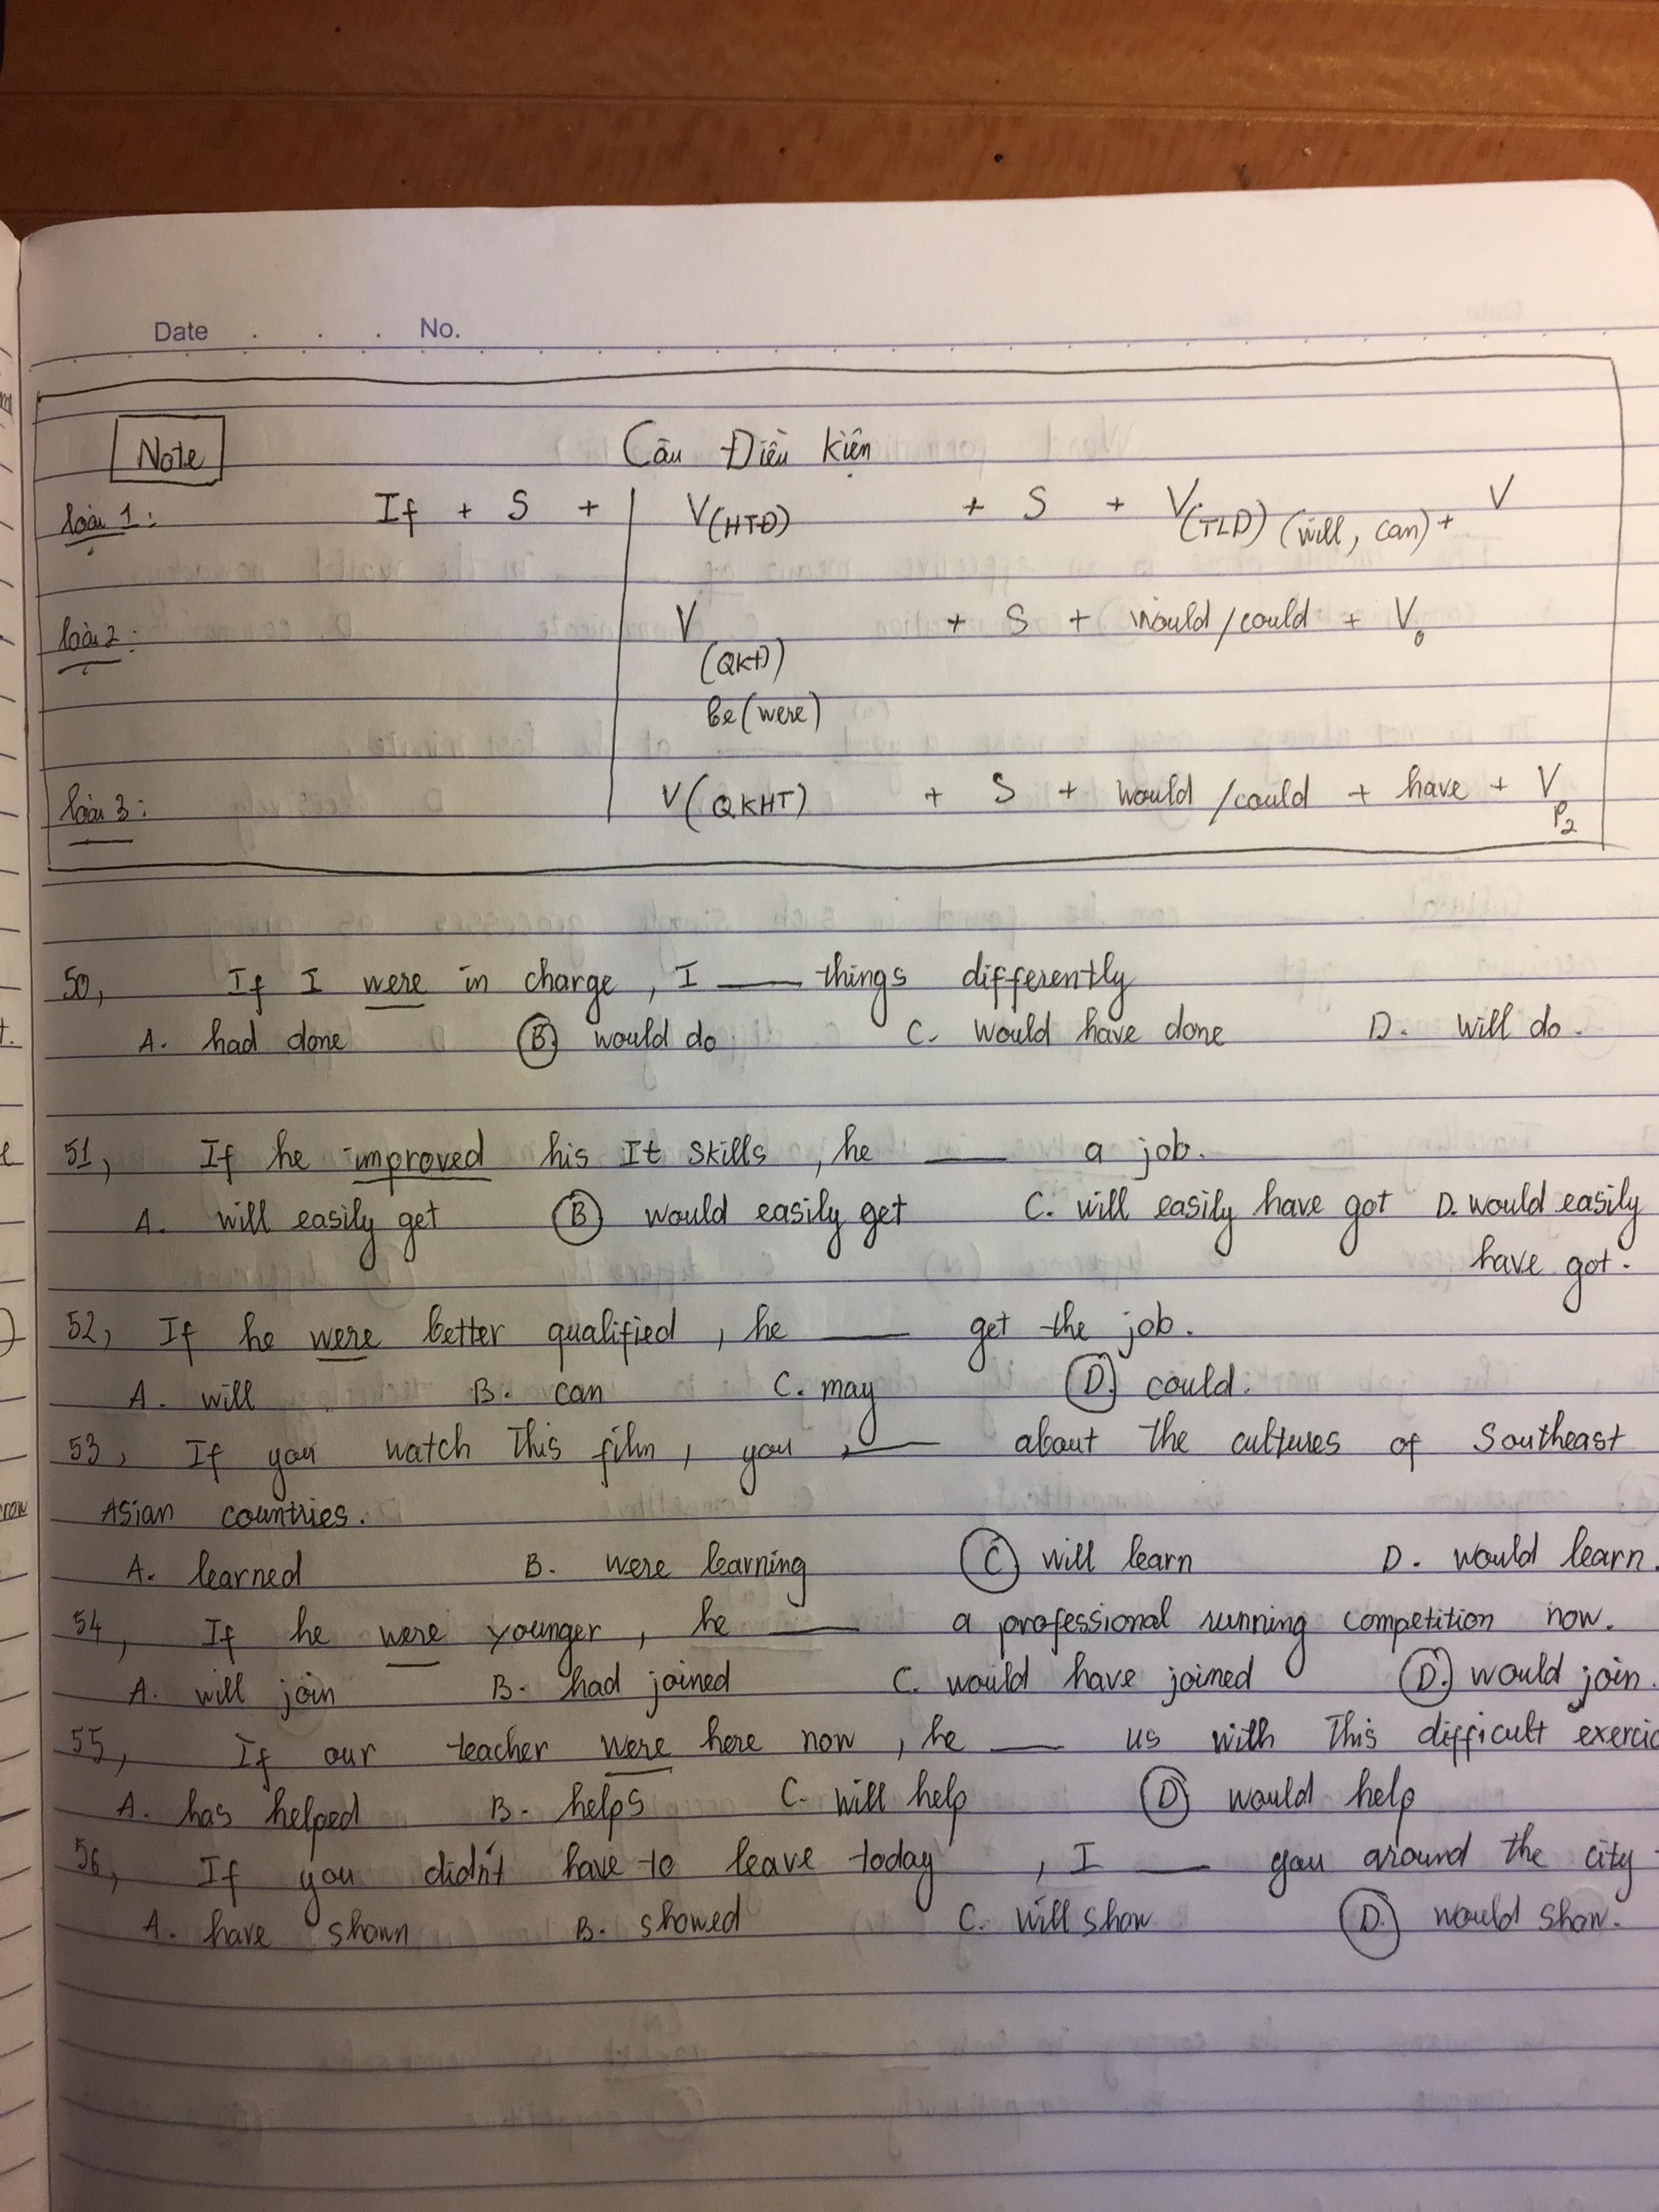 Date . . . No.
Note Câu Điều kiện
loại 1: If + S + V(HTĐ) + S + V(TLD) (will, can) + V
loại 2: V(QKĐ) + S + would/could + V₀
be (were)
loại 3: V(QKHT) + S + would/could + have + V P2
50, If I were in charge, I ___ things differently
A. had done B. would do C. would have done D. will do.
51, If he improved his It skills, he ___ a job.
A. will easily get B. would easily get C. will easily have got D. would easily
have got.
52, If he were better qualified, he ___ get the job.
A. will B. can C. may D. could.
53, If you watch this film, you, ___ about the cultures of Southeast
Asian countries.
A. learned B. were learning C. will learn D. would learn.
54, If he were younger, he ___ a professional running competition now.
A. will join B. had joined C. would have joined D. would join.
55, If our teacher were here now, he ___ us with this difficult exercic
A. has helped B. helps C. will help D. would help
56, If you didn't have to leave today, I ___ you around the city
A. have shown B. showed C. will show D. would show.